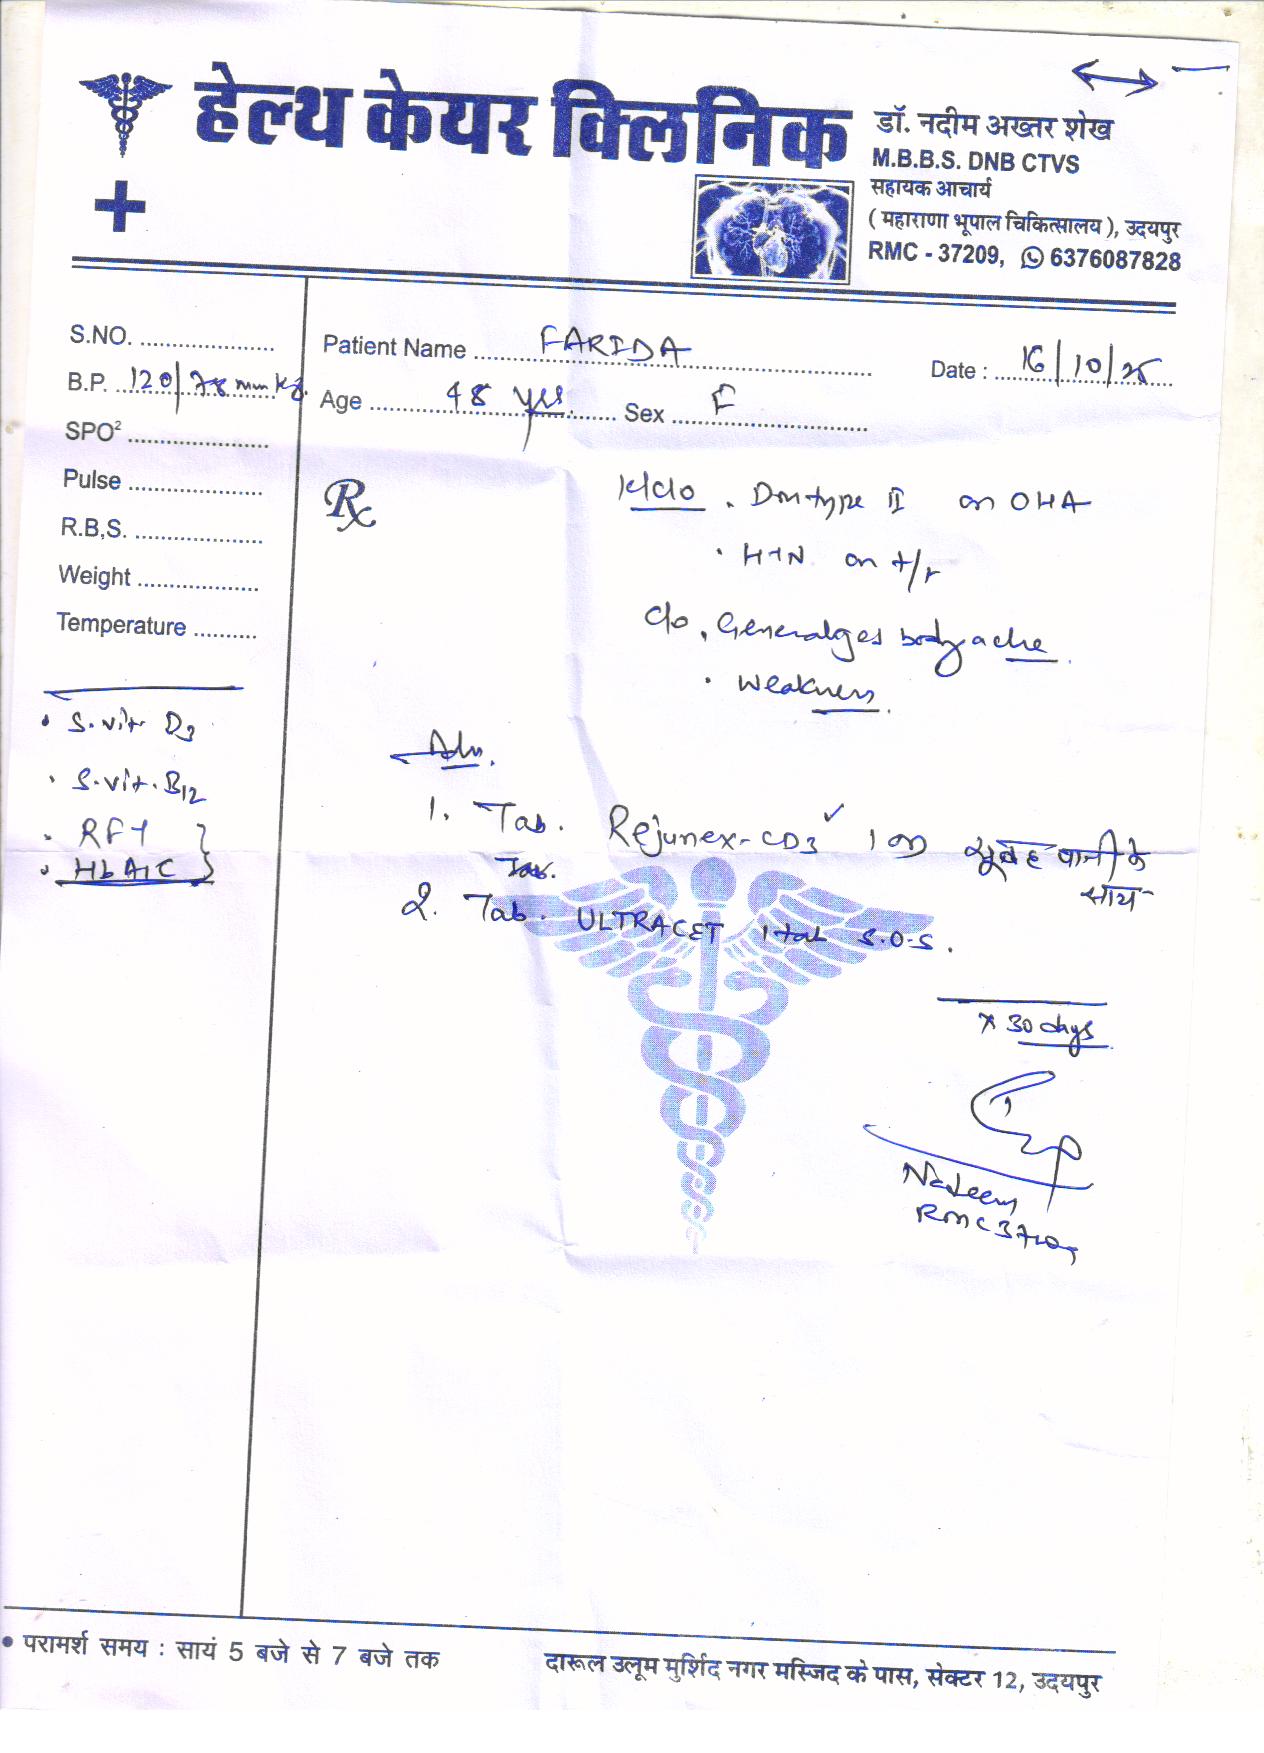 हेल्थ केयर क्लिनिक
डॉ. नदीम अख्तर शेख
M.B.B.S. DNB CTVS
सहायक आचार्य
( महाराणा भूपाल चिकित्सालय ), उदयपुर
RMC - 37209, 6376087828
S.NO. ....................
B.P. ...120/78 mm Hg
SPO2 ....................
Pulse ....................
R.B,S. ....................
Weight ..................
Temperature ..........
Patient Name ..... FARIDA
Date : ... 16/10/25
Age ....... 48 yrs. Sex ..... F
Rx
K/C/O . Dm type II on OHA
. HTN on t/r
C/o . Generalges body ache.
. Weakness.
. S. vit D3
. S. vit. B12
. RFT
. HbA1C
Adv.
1. Tab. Rejunex-CD3 1 OD सुबह पानी के साथ
Tab.
2. Tab. ULTRACET 1 tab S.O.S.
x 30 days
Nadeem
RMC 37209
• परामर्श समय : सायं 5 बजे से 7 बजे तक
दारूल उलूम मुर्शिद नगर मस्जिद के पास, सेक्टर 12, उदयपुर